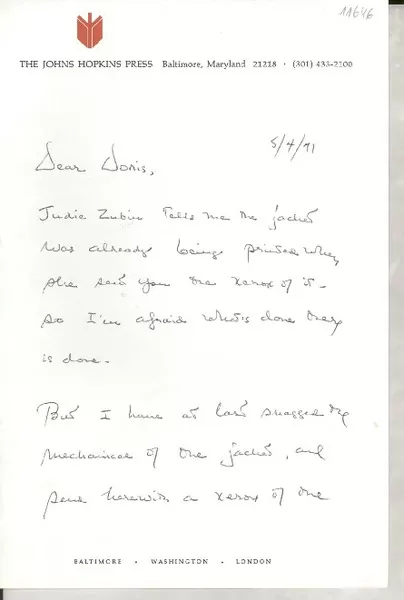 11646
THE JOHNS HOPKINS PRESS Baltimore, Maryland 21218 · (301) 436-2100
5/4/71
Dear Doris,
Judie Zubin tells me the jacket
was already being printed when
she sent you the xerox of it -
so I'm afraid what's done there
is done.
But I have at last snagged the
mechanical of the jacket, and
send herewith a xerox of the
BALTIMORE · WASHINGTON · LONDON